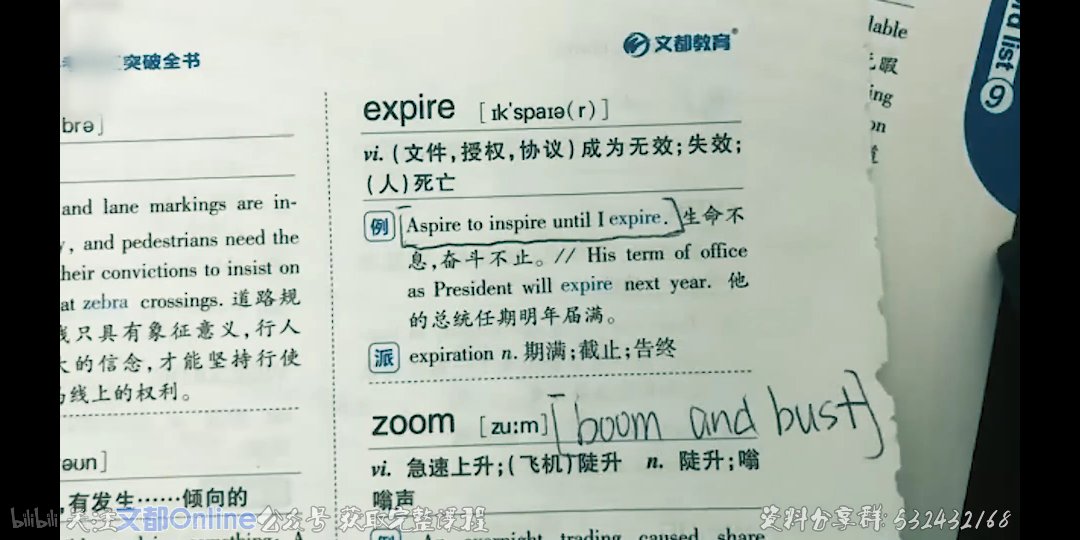 突破全书
文都教育
brə]
and lane markings are in-
y, and pedestrians need the
heir convictions to insist on
at zebra crossings. 道路规
线只具有象征意义，行人
大的信念，才能坚持行使
马线上的权利。
əun]
有发生……倾向的
expire [ɪk'spaɪə(r)]
vi. (文件，授权，协议)成为无效；失效；
(人)死亡
例 Aspire to inspire until I expire. 生命不
息，奋斗不止。// His term of office
as President will expire next year. 他
的总统任期明年届满。
派 expiration n. 期满；截止；告终
zoom [zu:m] [boom and bust]
vi. 急速上升；(飞机)陡升 n. 陡升；嗡
嗡声
例 An overnight trading caused share
lable
暇
ing
on
list 9
bilibili 关注文都Online公众号 获取完整课程
资料分享群: 532432168